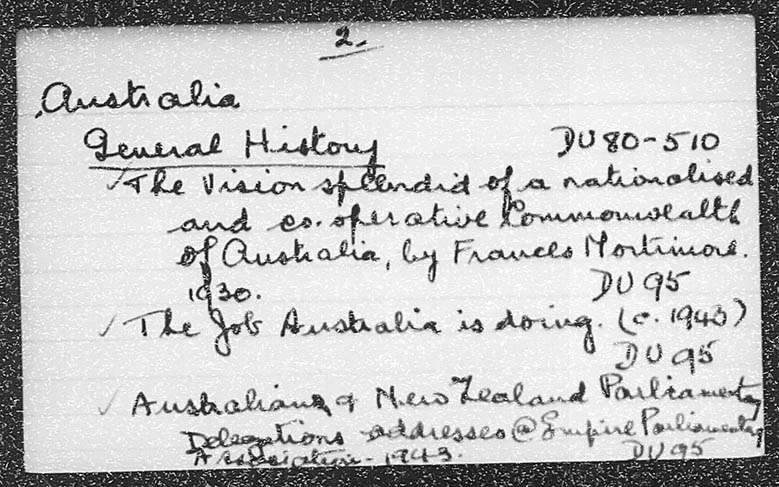 2.
Australia
General History DU 80-510
✓ The Vision splendid of a nationalised
and co.operative Commonwealth
of Australia, by Frances Mortimore.
1930. DU 95
✓ The Job Australia is doing. (c. 1943)
DU 95
✓ Australian & New Zealand Parliamentary
Delegations addresses @ Empire Parliamentary
Association - 1943. DU 95